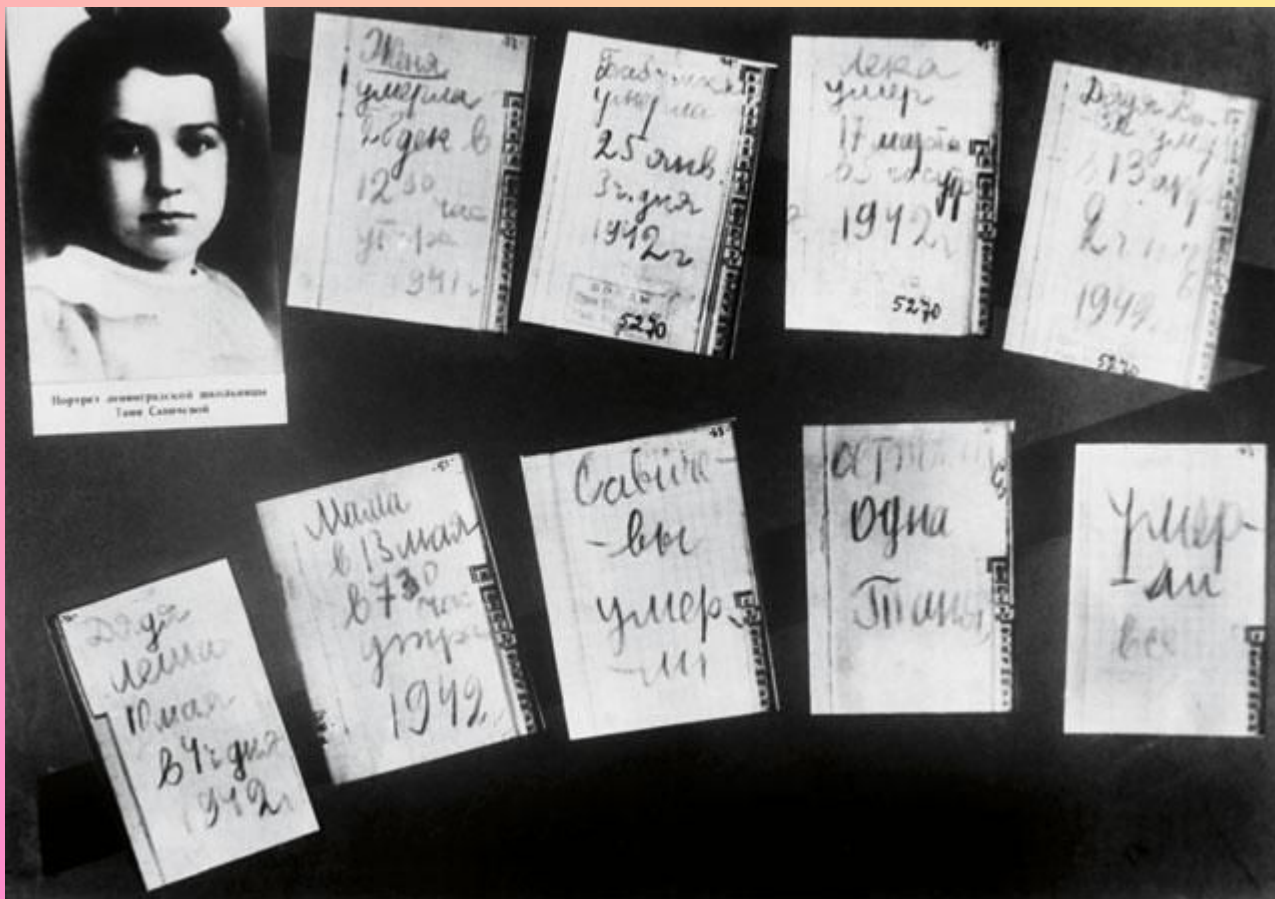 Портрет ленинградской школьницы
Тани Савичевой
Женя
умерла
28 дек в
12 30
час
утра
1941 г
Бабушка
умерла
25 янв
3 ч. дня
1942 г
5270
Лека
умер
17 марта
в 5 час утр
1942 г
5270
Дядя Ва-
умер
13 апр
2 ч
1942
5270
Дядя
Леша
10 мая
в 4 ч дня
1942 г
Мама
в 13 мая
в 7 30
час
утра
1942
Савиче-
-вы
умер-
-ли
одна
Таня
умер-
-ли
все